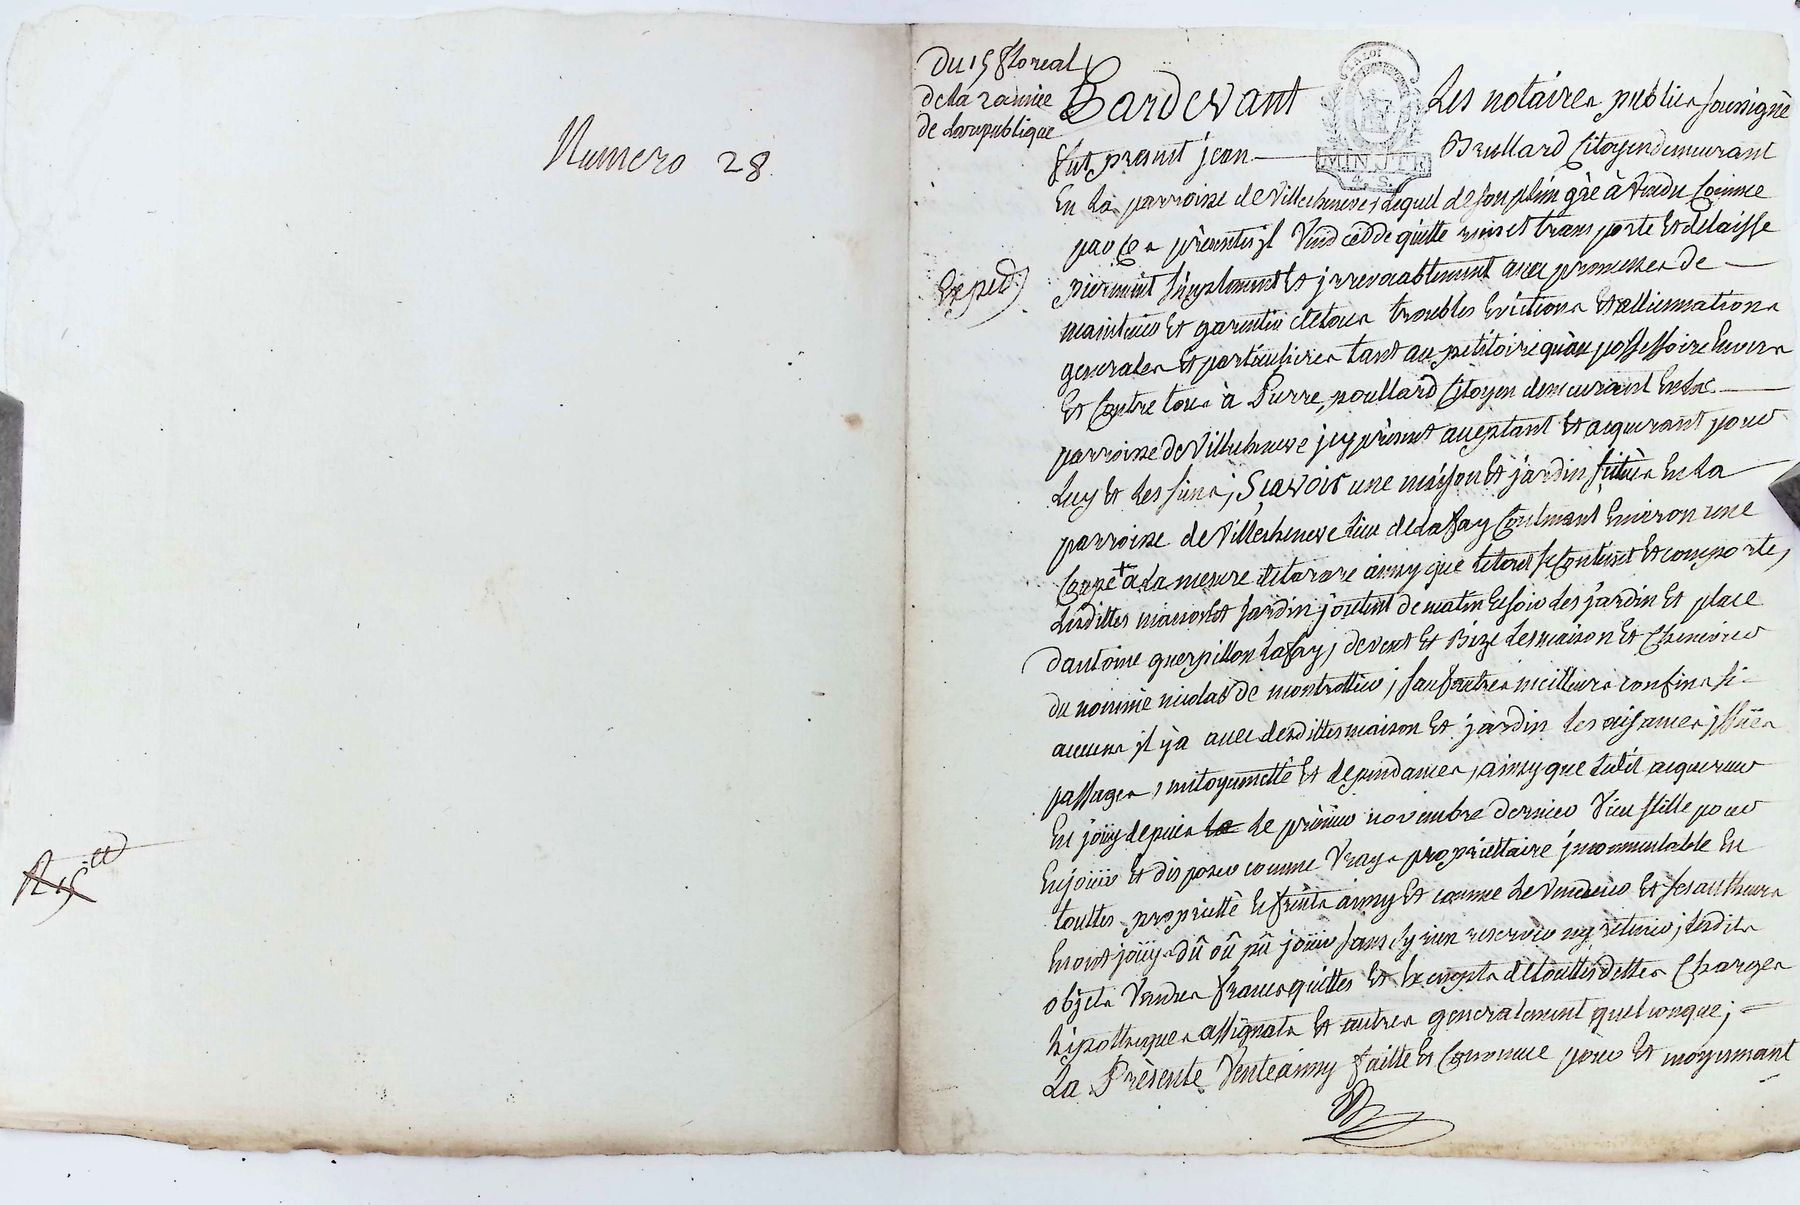 Numero 28.
Du 15 floreal
de la 2 année
de la republique
Expéd.
LA LOI
MIN. J.TR.
4. S.
Pardevant Les notaires publics soussignè
fut present jean Brullard Citoyen demeurant
En la parroisse de Villecheneve, Lequel de son plein grè à vendu Comme
par Ces prèsentes jl Vend cedde quitte remet transporte Et delaisse
purement simplement Et jrrevocablement avec promesses de
maintenir Et garentir de tous troubles Evictions Et alliennations
generales Et particulieres tant au petitoire qu'au possessoire Envers
Et Contre tous à Pierre poullard Citoyen demeurant En la
parroisse de Villecheneve jcy present aceptant Et acquerant pour
Luy Et Les siens, Sçavoir une maison Et jardin situès En La
parroisse de Villecheneve Lieu de Lafay Contenant Environ une
Coupe à La mesure de tarare ainsy que le tout se Contient Et comporte,
Lesdittes maison Et jardin joutent de matin Et soir Les jardin Et place
d'antoine guerpillon Lafay, de vent Et Bize Les maison Et Cheneviere
du nommé nicolas de montrottier, sauf autres meilleurs confins si
aucuns jl y a avec Lesdittes maison Et jardin les aisances jssües
passages, mitoyennetté Et dependances, ainsy que Ledit acquereur
En joüy depuis le Le premier novembre dernier Vieu stille pour
En joüir Et disposer comme Vrays propriettaire jncommutable En
touttes propriettè Et fruits ainsy Et comme Le Vendeur Et ses autheurs
En ont joüy dû où pû joüir sans sy rien reserver ny retenir, Lesdits
objets Vendus francs quittes Et Exempts de touttes dettes Charges
hipotheques assignats Et autres generalement quelconque;
La Prèsente Vente ainsy faitte Et Convenue pour Et moyennant